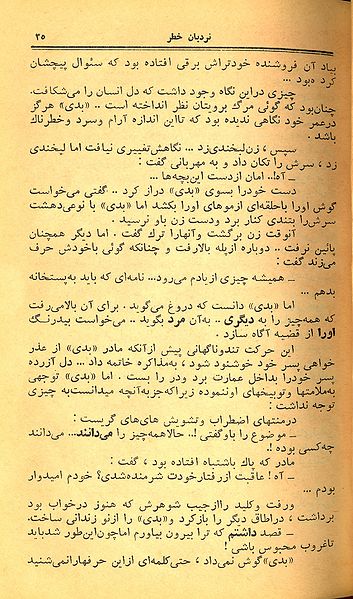 نردبان خطر ۳۵
بیاد آن فروشنده خودتراش برقی افتاده بود که سئوال پیچشان
کرده بود ...
چیزی دراین نگاه وجود داشت که دل انسان را می‌شکافت.
چنان‌بود که گوئی مرك برویتان نظر انداخته است .. «بدی» هرگز
درعمر خود نگاهی ندیده بود که تااین اندازه آرام وسرد وخطرناك
باشد .
سپس ، زن‌لبخندی‌زد ... نگاهش‌تغییری نیافت اما لبخندی
زد ، سرش را تکان داد و به مهربانی گفت :
ـ آه!.. امان ازدست این‌بچه‌ها...
دست خودرا بسوی «بدی» دراز کرد .. گفتی می‌خواست
گوش اورا یاحلقه‌ای ازموهای اورا بکشد اما «بدی» با نوعی‌دهشت
سرش‌را بتندی کنار برد ودست زن باو نرسید .
آنوقت زن برگشت وآنهارا ترك گفت . اما دیگر همچنان
پائین نرفت .. دوباره ازپله بالارفت و چنانکه گوئی باخودش حرف
می‌زند گفت :
ـ همیشه چیزی ازیادم می‌رود... نامه‌ای که باید به‌پستخانه
بدهم ...
اما «بدی» دانست که دروغ می‌گوید . برای آن بالامی‌رفت
که همه‌چیز را به دیگری .. به‌آن مرد بگوید .. می‌خواست بیدرنگ
اورا از قضیه آگاه سازد .
این حرکت تندوناگهانی پیش ازآنکه مادر «بدی» از عذر
خواهی پسر خود خوشنود شود ، به‌مذاکره خاتمه داد ... دل آزرده
پسر خودرا بداخل عمارت برد ودر را بست . اما «بدی» توجهی
به‌ملامتها وتوبیخهای اوننموده زیراکه‌جزبه‌آنچه میدانست‌به چیزی
توجه نداشت :
درمنتهای اضطراب وتشویش های‌های گریست :
ـ موضوع را باوگفتی !.. حالاهمه‌چیز را می‌دانند... می‌دانند
چه‌کسی بوده !.
مادر که پاك باشتباه افتاده بود ، گفت :
ـ آه ! عاقبت ازرفتارخودت شرمنده‌شدی؟ خودم امیدوار
بودم ...
ورفت وکلید راازجیب شوهرش که هنوز درخواب بود
برداشت ، دراطاق دیگر را بازکرد و«بدی» را ازنو زندانی ساخت.
ـ قصد داشتم که ترا بیرون بیاورم اماچون‌این‌طور شدباید
تاغروب محبوس باشی !
«بدی»گوش نمی‌داد ، حتی‌کلمه‌ای ازاین حرفهارانمی‌شنید